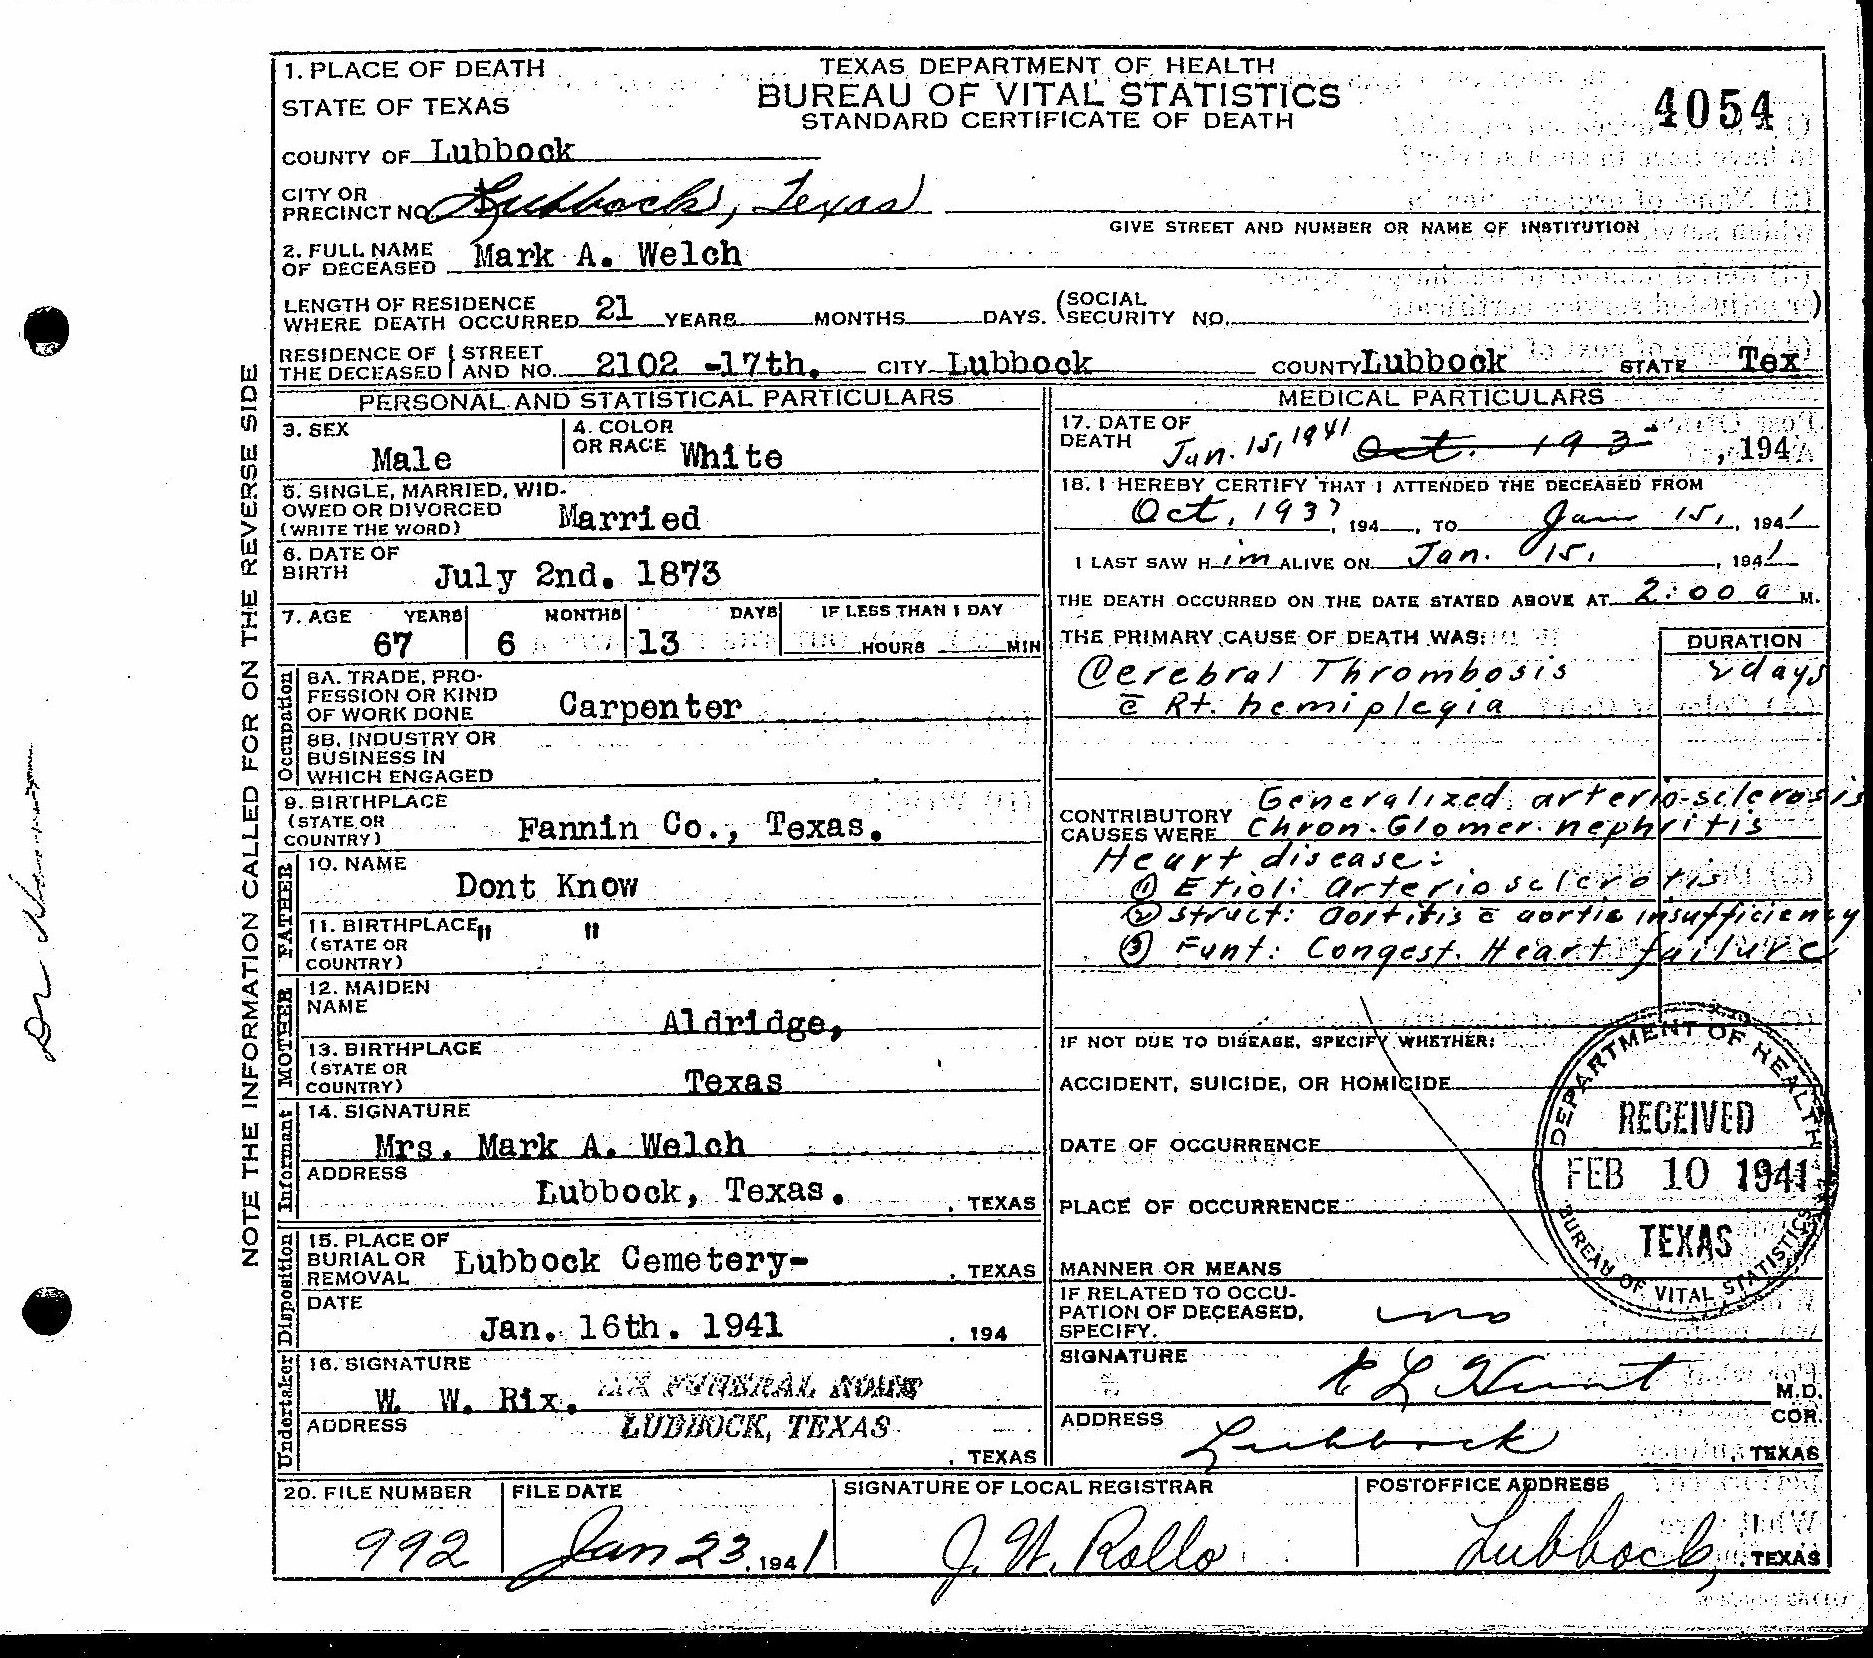 TEXAS DEPARTMENT OF HEALTH
BUREAU OF VITAL STATISTICS
STANDARD CERTIFICATE OF DEATH
4054
1. PLACE OF DEATH
STATE OF TEXAS
COUNTY OF Lubbock
CITY OR PRECINCT NO. Lubbock, Texas
GIVE STREET AND NUMBER OR NAME OF INSTITUTION
2. FULL NAME OF DECEASED Mark A. Welch
LENGTH OF RESIDENCE WHERE DEATH OCCURRED 21 YEARS MONTHS DAYS. (SOCIAL SECURITY NO. )
RESIDENCE OF THE DECEASED STREET AND NO. 2102 -17th. CITY Lubbock COUNTY Lubbock STATE Tex
NOTE THE INFORMATION CALLED FOR ON THE REVERSE SIDE
PERSONAL AND STATISTICAL PARTICULARS
3. SEX Male
4. COLOR OR RACE White
5. SINGLE, MARRIED, WIDOWED OR DIVORCED (WRITE THE WORD) Married
6. DATE OF BIRTH July 2nd. 1873
7. AGE YEARS 67 MONTHS 6 DAYS 13 IF LESS THAN 1 DAY HOURS MIN
Occupation
8A. TRADE, PROFESSION OR KIND OF WORK DONE Carpenter
8B. INDUSTRY OR BUSINESS IN WHICH ENGAGED
9. BIRTHPLACE (STATE OR COUNTRY) Fannin Co., Texas.
FATHER
10. NAME Dont Know
11. BIRTHPLACE (STATE OR COUNTRY) " "
MOTHER
12. MAIDEN NAME Aldridge,
13. BIRTHPLACE (STATE OR COUNTRY) Texas
Informant
14. SIGNATURE Mrs. Mark A. Welch
ADDRESS Lubbock, Texas. , TEXAS
Disposition
15. PLACE OF BURIAL OR REMOVAL Lubbock Cemetery- , TEXAS
DATE Jan. 16th. 1941 , 194
Undertaker
16. SIGNATURE W. W. Rix. FUNERAL HOME
ADDRESS LUBBOCK, TEXAS , TEXAS
MEDICAL PARTICULARS
17. DATE OF DEATH Jan. 15, 1941 Oct. 193 , 194
18. I HEREBY CERTIFY THAT I ATTENDED THE DECEASED FROM
Oct, 1937, 194 , TO Jan 15, , 1941
I LAST SAW HIM ALIVE ON Jan. 15, , 1941
THE DEATH OCCURRED ON THE DATE STATED ABOVE AT 2:00 a M.
THE PRIMARY CAUSE OF DEATH WAS: DURATION
Cerebral Thrombosis 2 days
c̄ Rt. hemiplegia
CONTRIBUTORY CAUSES WERE Generalized arterio-sclerosis
Chron. Glomer. nephritis
Heart disease:
① Etiol: Arteriosclerotis
② Struct: Aortitis c̄ aortic insufficiency
③ Funt: Congest. Heart failure
IF NOT DUE TO DISEASE, SPECIFY WHETHER:
ACCIDENT, SUICIDE, OR HOMICIDE
DATE OF OCCURRENCE
PLACE OF OCCURRENCE
MANNER OR MEANS
IF RELATED TO OCCUPATION OF DECEASED, SPECIFY. no
DEPARTMENT OF HEALTH
RECEIVED
FEB 10 1941
TEXAS
BUREAU OF VITAL STATISTICS
SIGNATURE E L Hunt M.D. COR.
ADDRESS Lubbock , TEXAS
20. FILE NUMBER 992
FILE DATE Jan 23, 1941
SIGNATURE OF LOCAL REGISTRAR J. W. Rollo
POSTOFFICE ADDRESS Lubbock, TEXAS
Dr